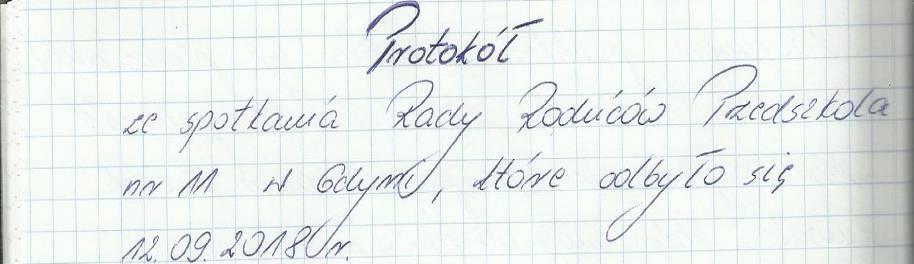 Protokół
ze spotkania Rady Rodziców Przedszkola
nr 11 w Gdyni, które odbyło się
12.09.2018 r.